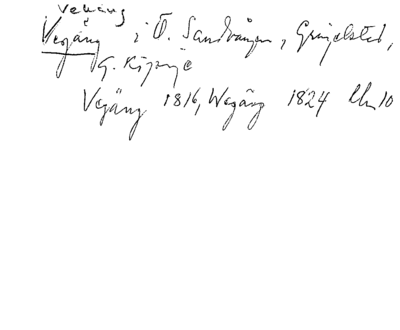 vekäng
Vegäng i Ö. Sandvången, Grinjelsted,
G. Köpinge
Vegäng 1816, Wegäng 1824 Lm 10